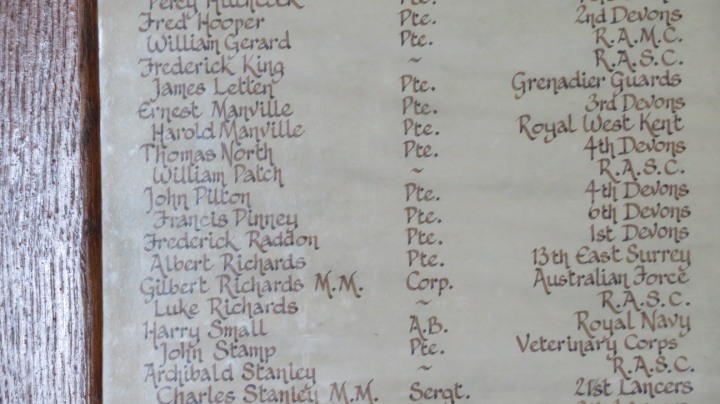 Percy Hitchcock Pte.
Fred Hooper Pte. 2nd Devons
William Gerard Pte. R.A.M.C.
Frederick King ~ R.A.S.C.
James Letten Pte. Grenadier Guards
Ernest Manville Pte. 3rd Devons
Harold Manville Pte. Royal West Kent
Thomas North Pte. 4th Devons
William Patch ~ R.A.S.C.
John Pilton Pte. 4th Devons
Francis Pinney Pte. 6th Devons
Frederick Raddon Pte. 1st Devons
Albert Richards Pte. 13th East Surrey
Gilbert Richards M.M. Corp. Australian Force
Luke Richards ~ R.A.S.C.
Harry Small A.B. Royal Navy
John Stamp Pte. Veterinary Corps
Archibald Stanley ~ R.A.S.C.
Charles Stanley M.M. Sergt. 21st Lancers